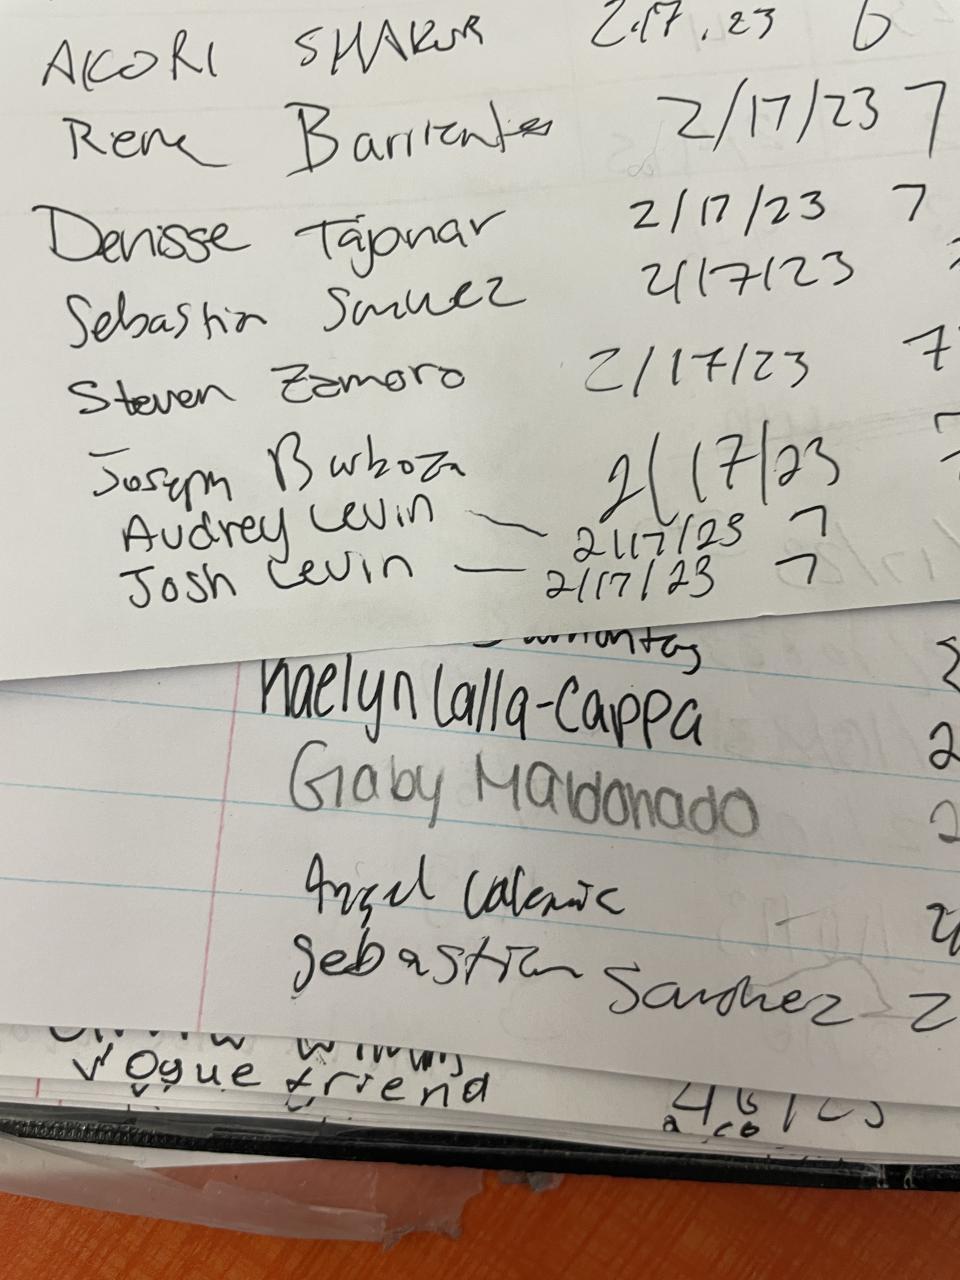 AKORI SHAKUR 2.17.23 6
Rene Barrientes 2/17/23 7
Denisse Tajonar 2/17/23 7
Sebastian 2/17/23
Steven Zamora 2/17/23 7
Joseph Barboza 2/17/23
Audrey Levin — 2/17/23 7
Josh Levin — 2/17/23 7
Kaelyn Lalla-Cappa 2
Gaby Maldonado 2
Angel
Sebastian Sanchez 2
Vogue friend